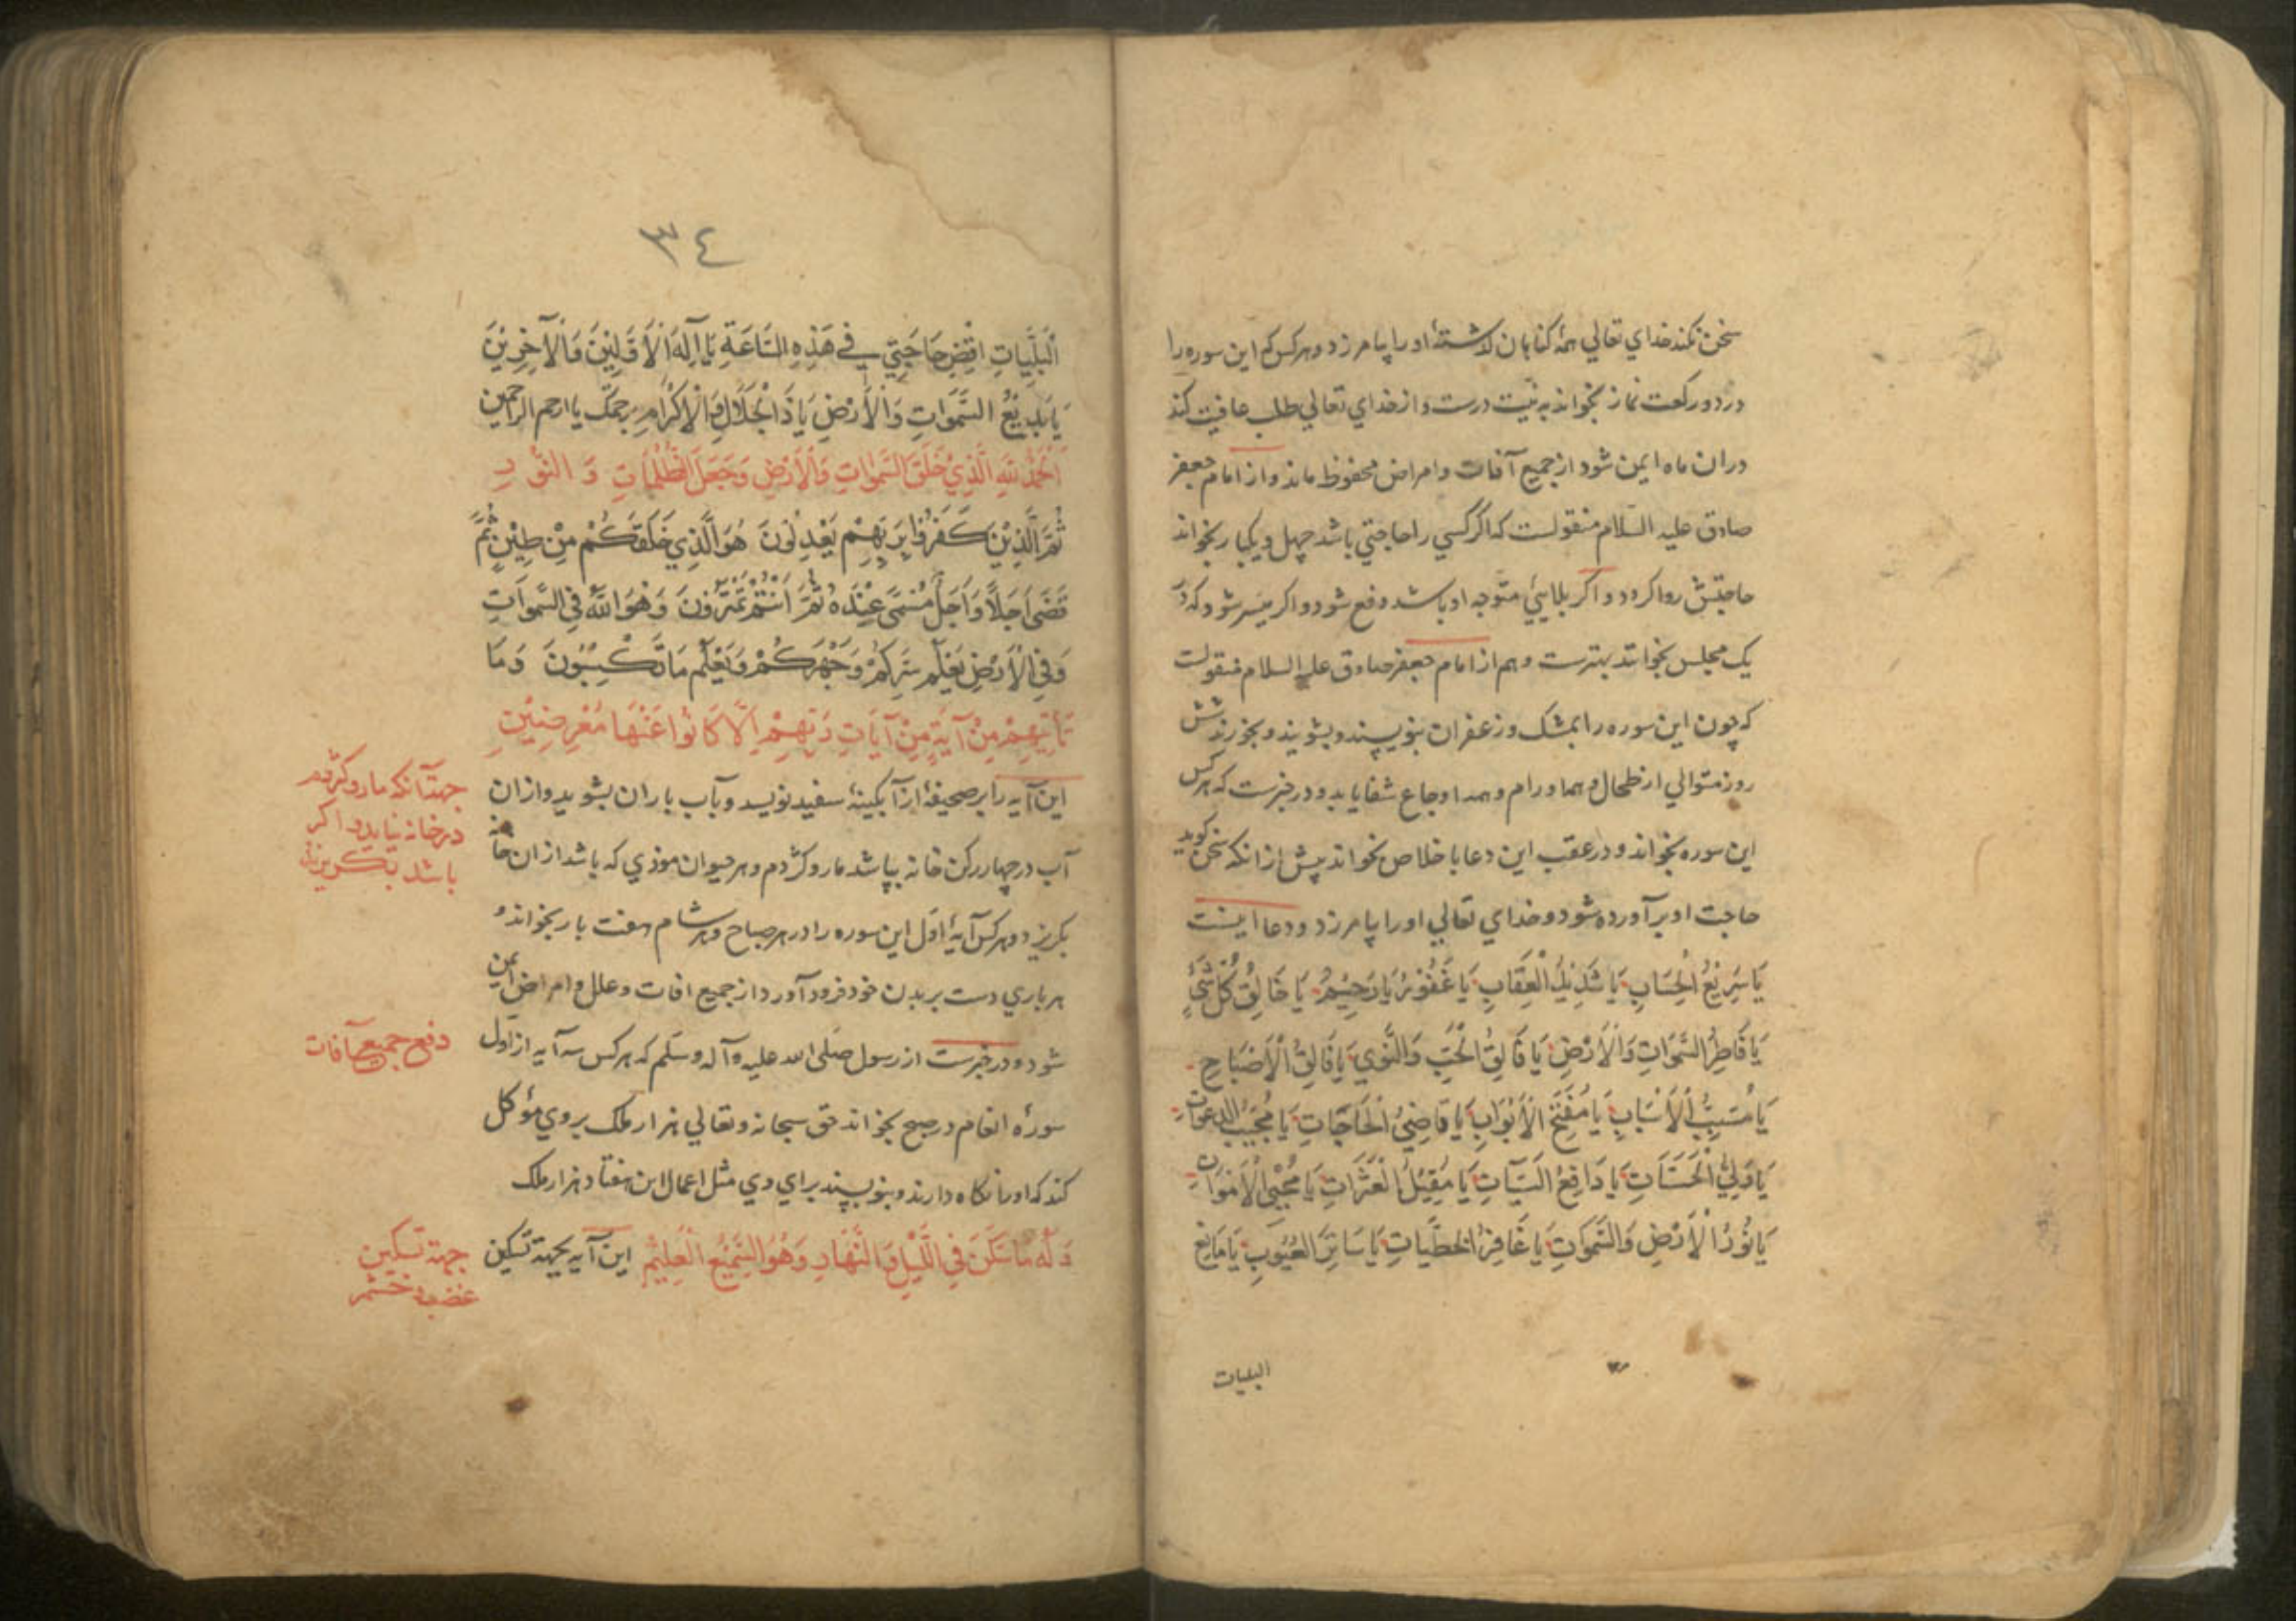 سخن نکند خدای تعالی همهٔ کناهان کذشتهٔ اورا بیامرزد و هرکس که این سوره را
در دو رکعت نماز بخواند به نیت درست و از خدای تعالی طلب عافیت کند
دران ماه ایمن شود از جمیع آفات و امراض محفوظ ماند و از امام جعفر
صادق علیه السلام منقولست که اکر کسی را حاجتی باشد چهل و یکبار بخواند
حاجتش روا کردد و اکر بلایئی متوجه او باشد دفع شود و اکر میسر شود که در
یک مجلس بخواند بهترست و هم از امام جعفر صادق علیه السلام منقولست
که چون این سوره را بمشک و زعفران بنویسند و بشویند و بخورند شش
روز متوالی از طحال و هما ورام و همه اوجاع شفا یابد و در خبرست که هرکس
این سوره بخواند و در عقب این دعا باخلاص بخواند پیش از انکه سخن کوید
حاجت او برآورده شود و خدای تعالی اورا بیامرزد و دعا اینست
يَا سَرِيْعُ الْحِسَابِ يَا شَدِيْدُ الْعِقَابِ يَا غَفُوْرُ يَا رَحِيْمُ يَا خَالِقُ كُلِّ شَيْءٍ
يَا فَاطِرُ السَّمَوَاتِ وَالْأَرْضِ يَا فَالِقُ الْحَبِّ وَالنَّوَي يَا فَالِقُ الْأَصْبَاحِ
يَا مُسَبِّبُ الْأَسْبَابِ يَا مُفَتِّحَ الْأَبْوَابِ يَا قَاضِيُ الْحَاجَاتِ يَا مُجِيْبُ الدعوات
يَا وَلِيُّ الْحَسَنَاتِ يَا دَافِعُ السَّيِّئَاتِ يَا مُقِيْلُ الْعَثَرَاتِ يَا مُحْيِي الْأَمْوَاتِ
يَا نُوْرُ الْأَرْضِ وَالسَّمَوَاتِ يَا غَافِرُ الْخَطِيَّاتِ يَا سَاتِرَ الْعُيُوْبِ يَا مَانِعُ
البلیات
٣٤
الْبَلِيَّاتِ اقْضِ حَاجَتِيْ فِي هَذِهِ السَّاعَةِ يَا آلِهَ الْأَوَّلِيْنَ وَالْآخِرِيْنَ
يَا بَدِيْعُ السَّمَوَاتِ وَالْأَرْضِ يَا ذَا الْجَلَالِ وَالْإِكْرَامِ برحمتک یا ارحم الراحمین
اَلْحَمْدُ لِلّهِ الَّذِيْ خَلَقَ السَّمَوَاتِ وَالْأَرْضَ وَجَعَلَ الظُّلُمَاتِ وَ النُّوْرِ
ثُمَّ الَّذِيْنَ كَفَرُوْا بِرَبِّهِمْ يَعْدِلُوْنَ هُوَ الَّذِي خَلَقَكُمْ مِنْ طِيْنٍ ثُمَّ
قَضَى اَجَلًا وَاَجَلٌ مُسَمًّى عِنْدَهُ ثُمَّ اَنْتُمْ تَمْتَرُوْنَ وَهُوَ اللَّهُ فِي السَّمَوَاتِ
وَفِي الْأَرْضِ يَعْلَمُ سِرَّكُمْ وَجَهْرَكُمْ وَيَعْلَمُ مَا تَكْسِبُوْنَ وَمَا
تَأْتِيْهِمْ مِنْ آيَةٍ مِنْ آيَاتِ رَبِّهِمْ اِلَّا كَانُوْا عَنْهَا مُعْرِضِيْنَ
این آیه را بر صحیفهٔ از آبکینهٔ سفید نویسد و بآب باران بشوید و ازان
آب در چهار رکن خانه بپاشد مار و کژدم و هر حیوان موذی که باشد ازان خانه
بکریزد و هرکس آیهٔ اول این سوره را در هر صباح و هر شام هفت بار بخواند و
هر باری دست بر بدن خود فرود آورد از جمیع افات و علل و امراض ایمن
شود و در خبرست از رسول صلی الله علیه و آله وسلم که هرکس سه آیه از اول
سورهٔ انعام در صبح بخواند حق سبحانه و تعالی هزار ملک بر وی مؤکل
کند که اورا نکاه دارند و بنویسند برای وی مثل اعمال این هفتاد هزار ملک
وَلَهُ مَا سَكَنَ فِي اللَّيْلِ وَالنَّهَارِ وَهُوَ السَّمِيْعُ الْعَلِيْمُ این آیه بجهة تسکین
جهة آنکه مار و کژدم
در خانه نیاید و اکر
باشد بکریزند
دفع جمیع آفات
جهة تسکین
غضب و خشم